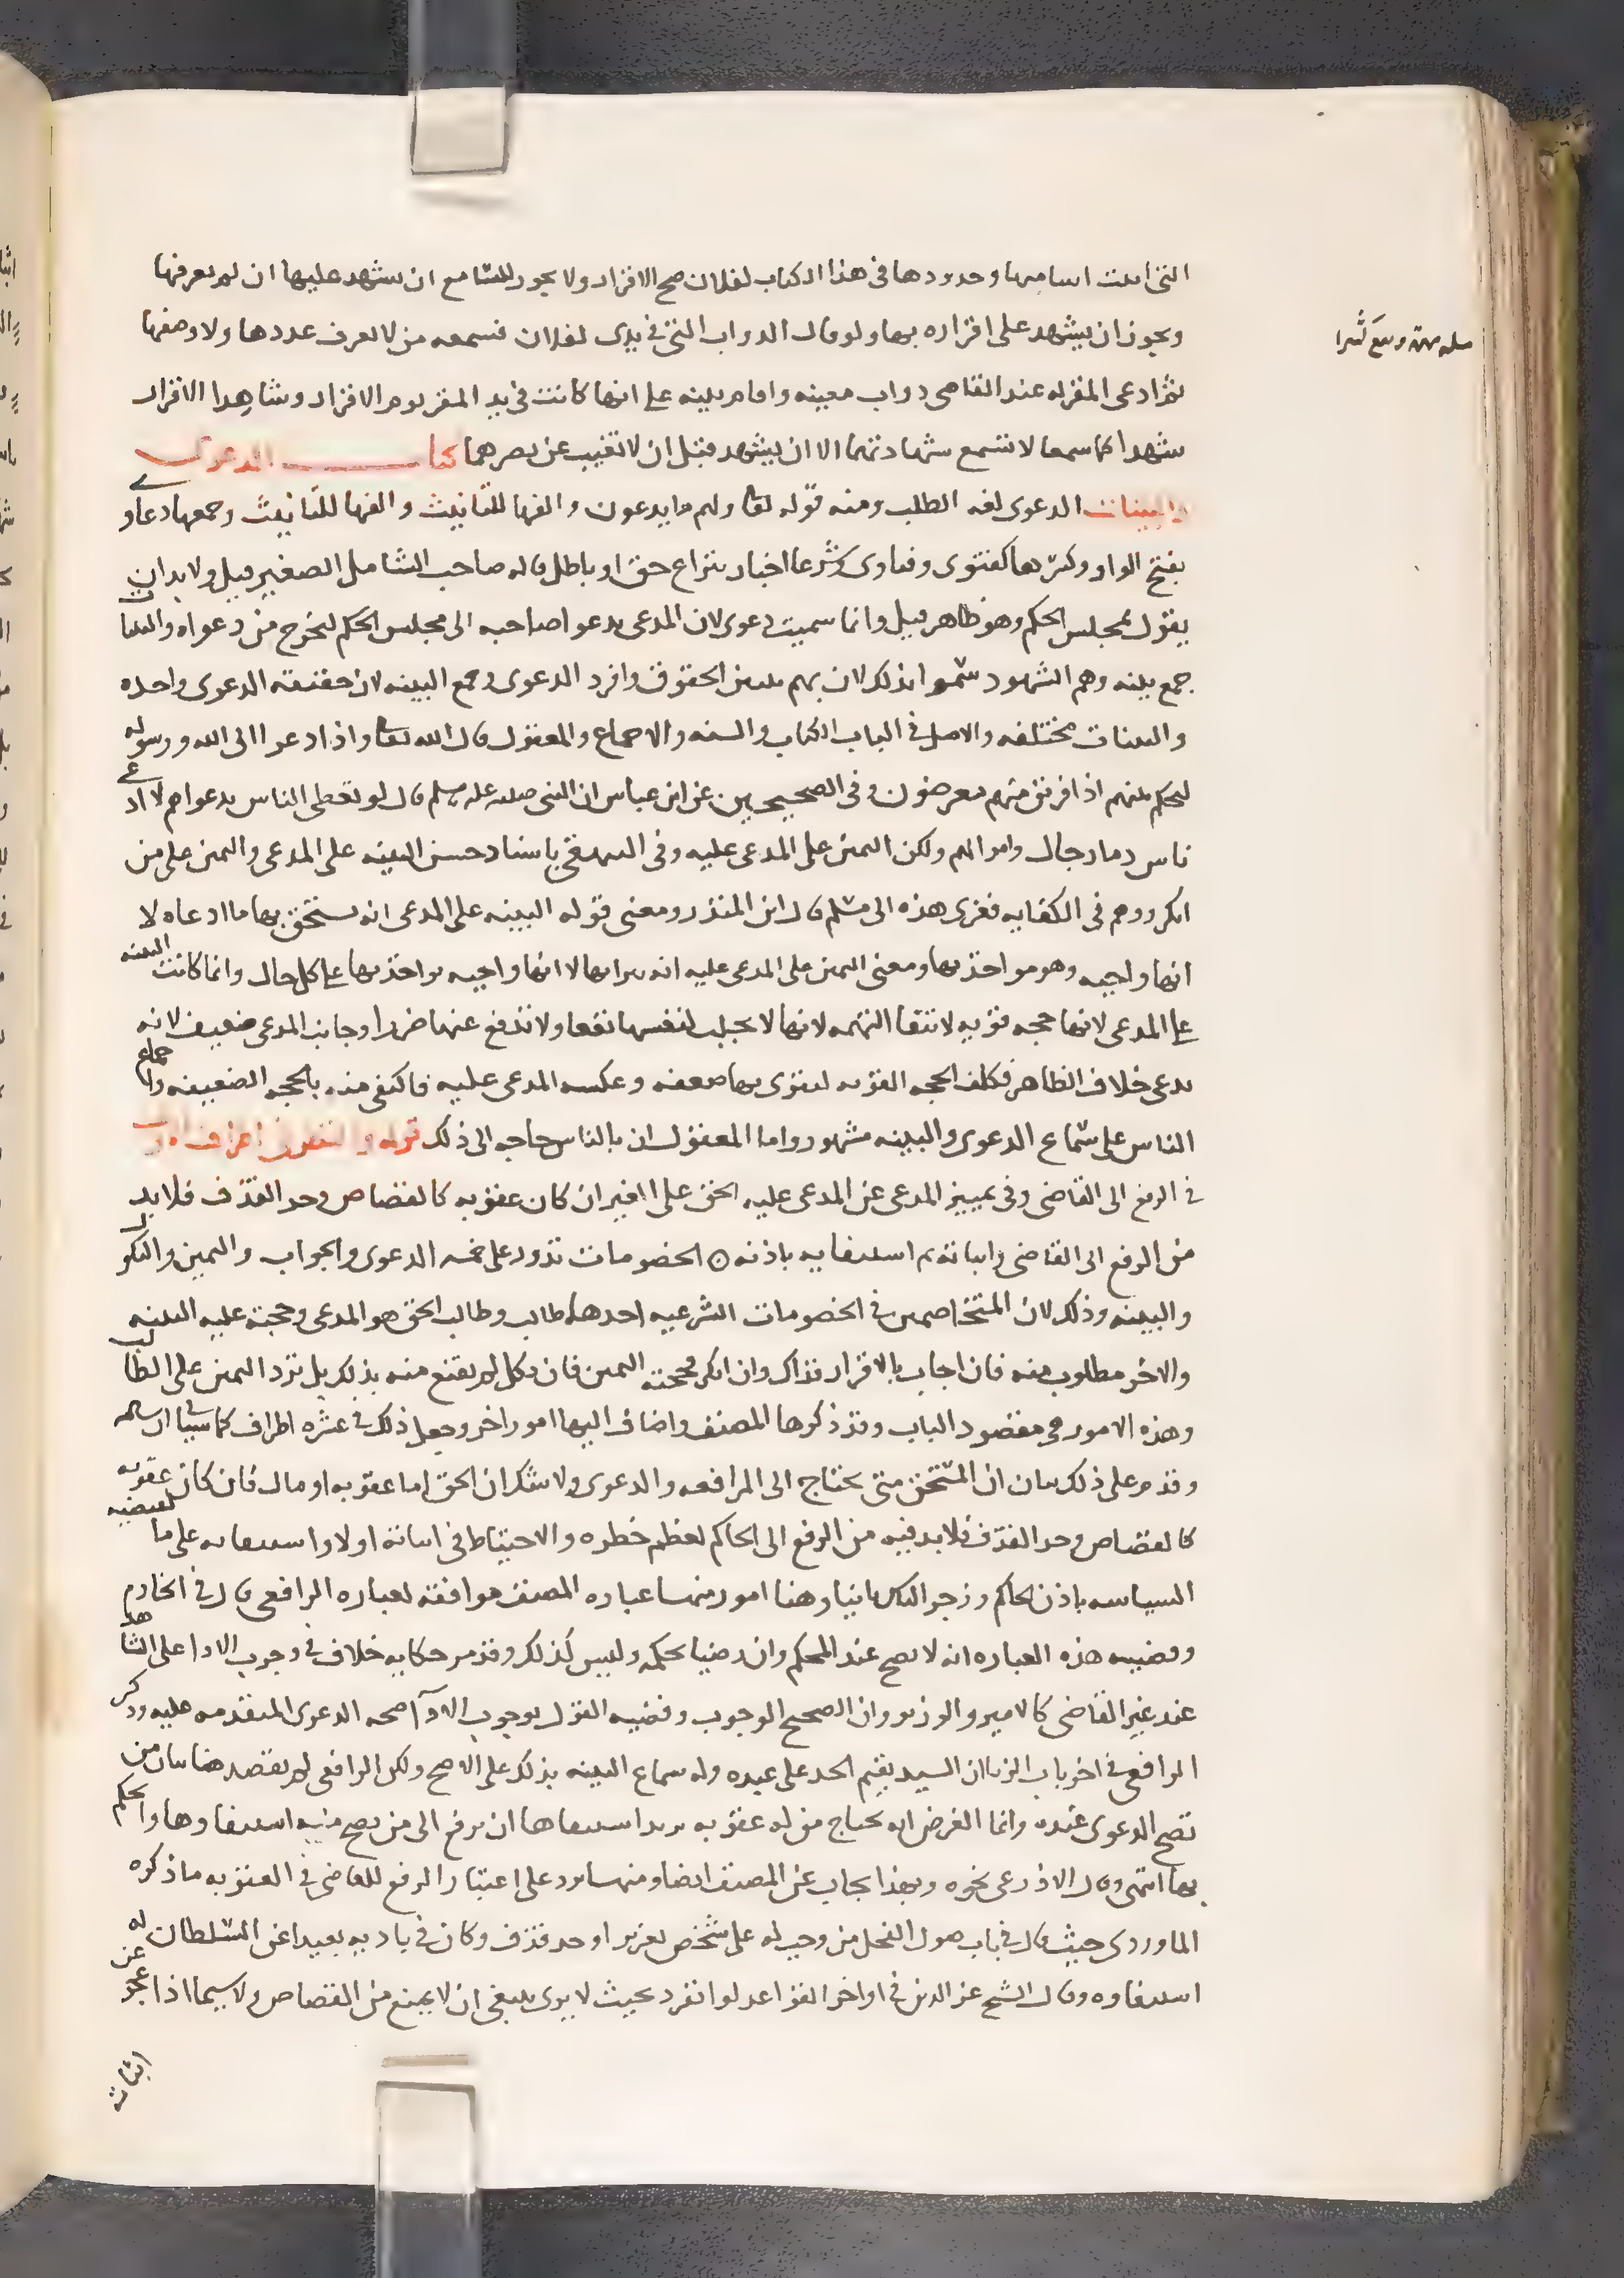 التى اثبت اساميها وحدودها فى هذا الكتاب لفلان صح الاقرار ولا يجوز للسامع ان يشهد عليها ان لم يعرفها
ويجوز ان يشهد على اقراره بها ولو قال الدواب التى فى يدى لفلان فسمعه من لا يعرف عددها ولا وصفها
مسله مهمة وتقع كثيرا
ثم ادعى المقر له عند القاضى دواب معينه واقام بينه على انها كانت فى يد المقر يوم الاقرار وشاهدا الاقرار
شهدا كما سمعا لا تسمع شهادتهما الا ان يشهد قبل ان لا تغيب عن بصرهما كتاب الدعوى
والبينات الدعوى لغه الطلب ومنه قوله تعا ولهم ما يدعون والفها للتانيث والفها للتانيث وجمعها دعاو
بفتح الواو وكسرها كفتوى وفتاوى وشرعا اخبار بنزاع حق او باطل قاله صاحب الشامل الصغير قيل ولا بد ان
يقول بمجلس الحكم وهو ظاهر قيل وانما سميت دعوى لان المدعى يدعو صاحبه الى مجلس الحكم ليخرج من دعواه والبينات
جمع بينه وهم الشهود سموا بذلك لان بهم يتبين الحقوق وافرد الدعوى وجمع البينه لان حقيقة الدعوى واحده
والبينات مختلفه والاصل فى الباب الكتاب والسنه والاجماع والمعقول قال الله تعا واذا دعوا الى الله ورسوله
ليحكم بينهم اذا فريق منهم معرضون وفى الصحيحين عن ابن عباس ان النبى صلى الله عليه وسلم قال لو يعطى الناس بدعواهم لادعى
ناس دما رجال واموالهم ولكن اليمين على المدعى عليه وفى البيهقى باسناد حسن البينه على المدعى واليمين على من
انكر ووهم فى الكفايه فعزى هذه الى مسلم قال ابن المنذر ومعنى قوله البينه على المدعى انه يستحق بها ما ادعاه لا
انها واجبه وهو مواخذ بها ومعنى اليمين على المدعى عليه انه يبرا بها لا انها واجبه يواخذ بها على كل حال وانما كانت البينه
على المدعى لانها حجه قويه لانتفا التهمه لانها لا تجلب لنفسها نفعا ولا تدفع عنها ضررا وجانب المدعى ضعيف لانه
يدعى خلاف الظاهر فكلف الحجه القويه ليقوى بها ضعفه وعكسه المدعى عليه فاكتفى منه بالحجه الضعيفه واجماع
الناس على سماع الدعوى والبينه مشهور واما المعقول ان بالناس حاجه الى ذلك قوله
فى الرفع الى القاضى وفى تمييز المدعى عن المدعى عليه الحق على الغير ان كان عقوبه كالقصاص وحد القذف فلا بد
من الرفع الى القاضى واثباته ثم استيفايه باذنه الخصومات تدور على خمسه الدعوى والجواب واليمين والنكول
والبينه وذلك لان المتخاصمين فى الخصومات الشرعيه احدهما طالب وطالب الحق هو المدعى وحجته عليه البينه
والاخر مطلوب منه فان اجاب بالاقرار فذاك وان انكر فحجته اليمين فان نكل لم يقنع منه بذلك بل ترد اليمين على الطالب
وهذه الامور هى مقصود الباب وقد ذكرها المصنف واضاف اليها امور اخر وجعل ذلك فى عشره اطراف كما سياتى ان شا الله
وقدم على ذلك بيان ان المستحق متى يحتاج الى المرافعه والدعوى ولا شك ان الحق اما عقوبه او مال فان كان عقوبه
كالقصاص وحد القذف فلا بد فيه من الرفع الى الحاكم لعظم خطره والاحتياط فى اثباته اولا واستيفايه على ما تقتضيه
السياسه باذن الحاكم وزجر الناس ثانيا وهنا امور منها عباره المصنف موافقه لعباره الرافعى قال فى الخادم
وقضيه هذه العباره انه لا يصح عند المحكم وان رضيا بحكمه وليس كذلك وقد مر حكايه خلاف فى وجوب الادا على الشاهد
عند غير القاضى كالامير والوزير وان الصحيح الوجوب وقضيه القول بوجوب الادآ صحه الدعوى المتقدمه عليه وذكر
الرافعى فى اخر باب الزنا ان السيد يقيم الحد على عبده وله سماع البينه بذلك على الاصح ولكن الرافعى لم يقصد هنا بيان من
تصح الدعوى عنده وانما الغرض انه يحتاج من له عقوبه يريد استيفاها ان يرفع الى من يصح منه استيفاوها والحكم
بها انتهى وقال الاذرعى نحوه وبهذا يجاب عن المصنف ايضا ومنها يرد على اعتبار الرفع للقاضى فى العقوبه ما ذكره
الماوردى حيث قال فى باب صول الفحل من وجب له على شخص تعزير او حد قذف وكان فى باديه بعيدا عن السلطان له
استيفاوه وقال الشيخ عز الدين فى اواخر القواعد لو انفرد بحيث لا يرى ينبغى ان لا يمنع من القصاص ولا سيما اذا عجز عن
اثباته